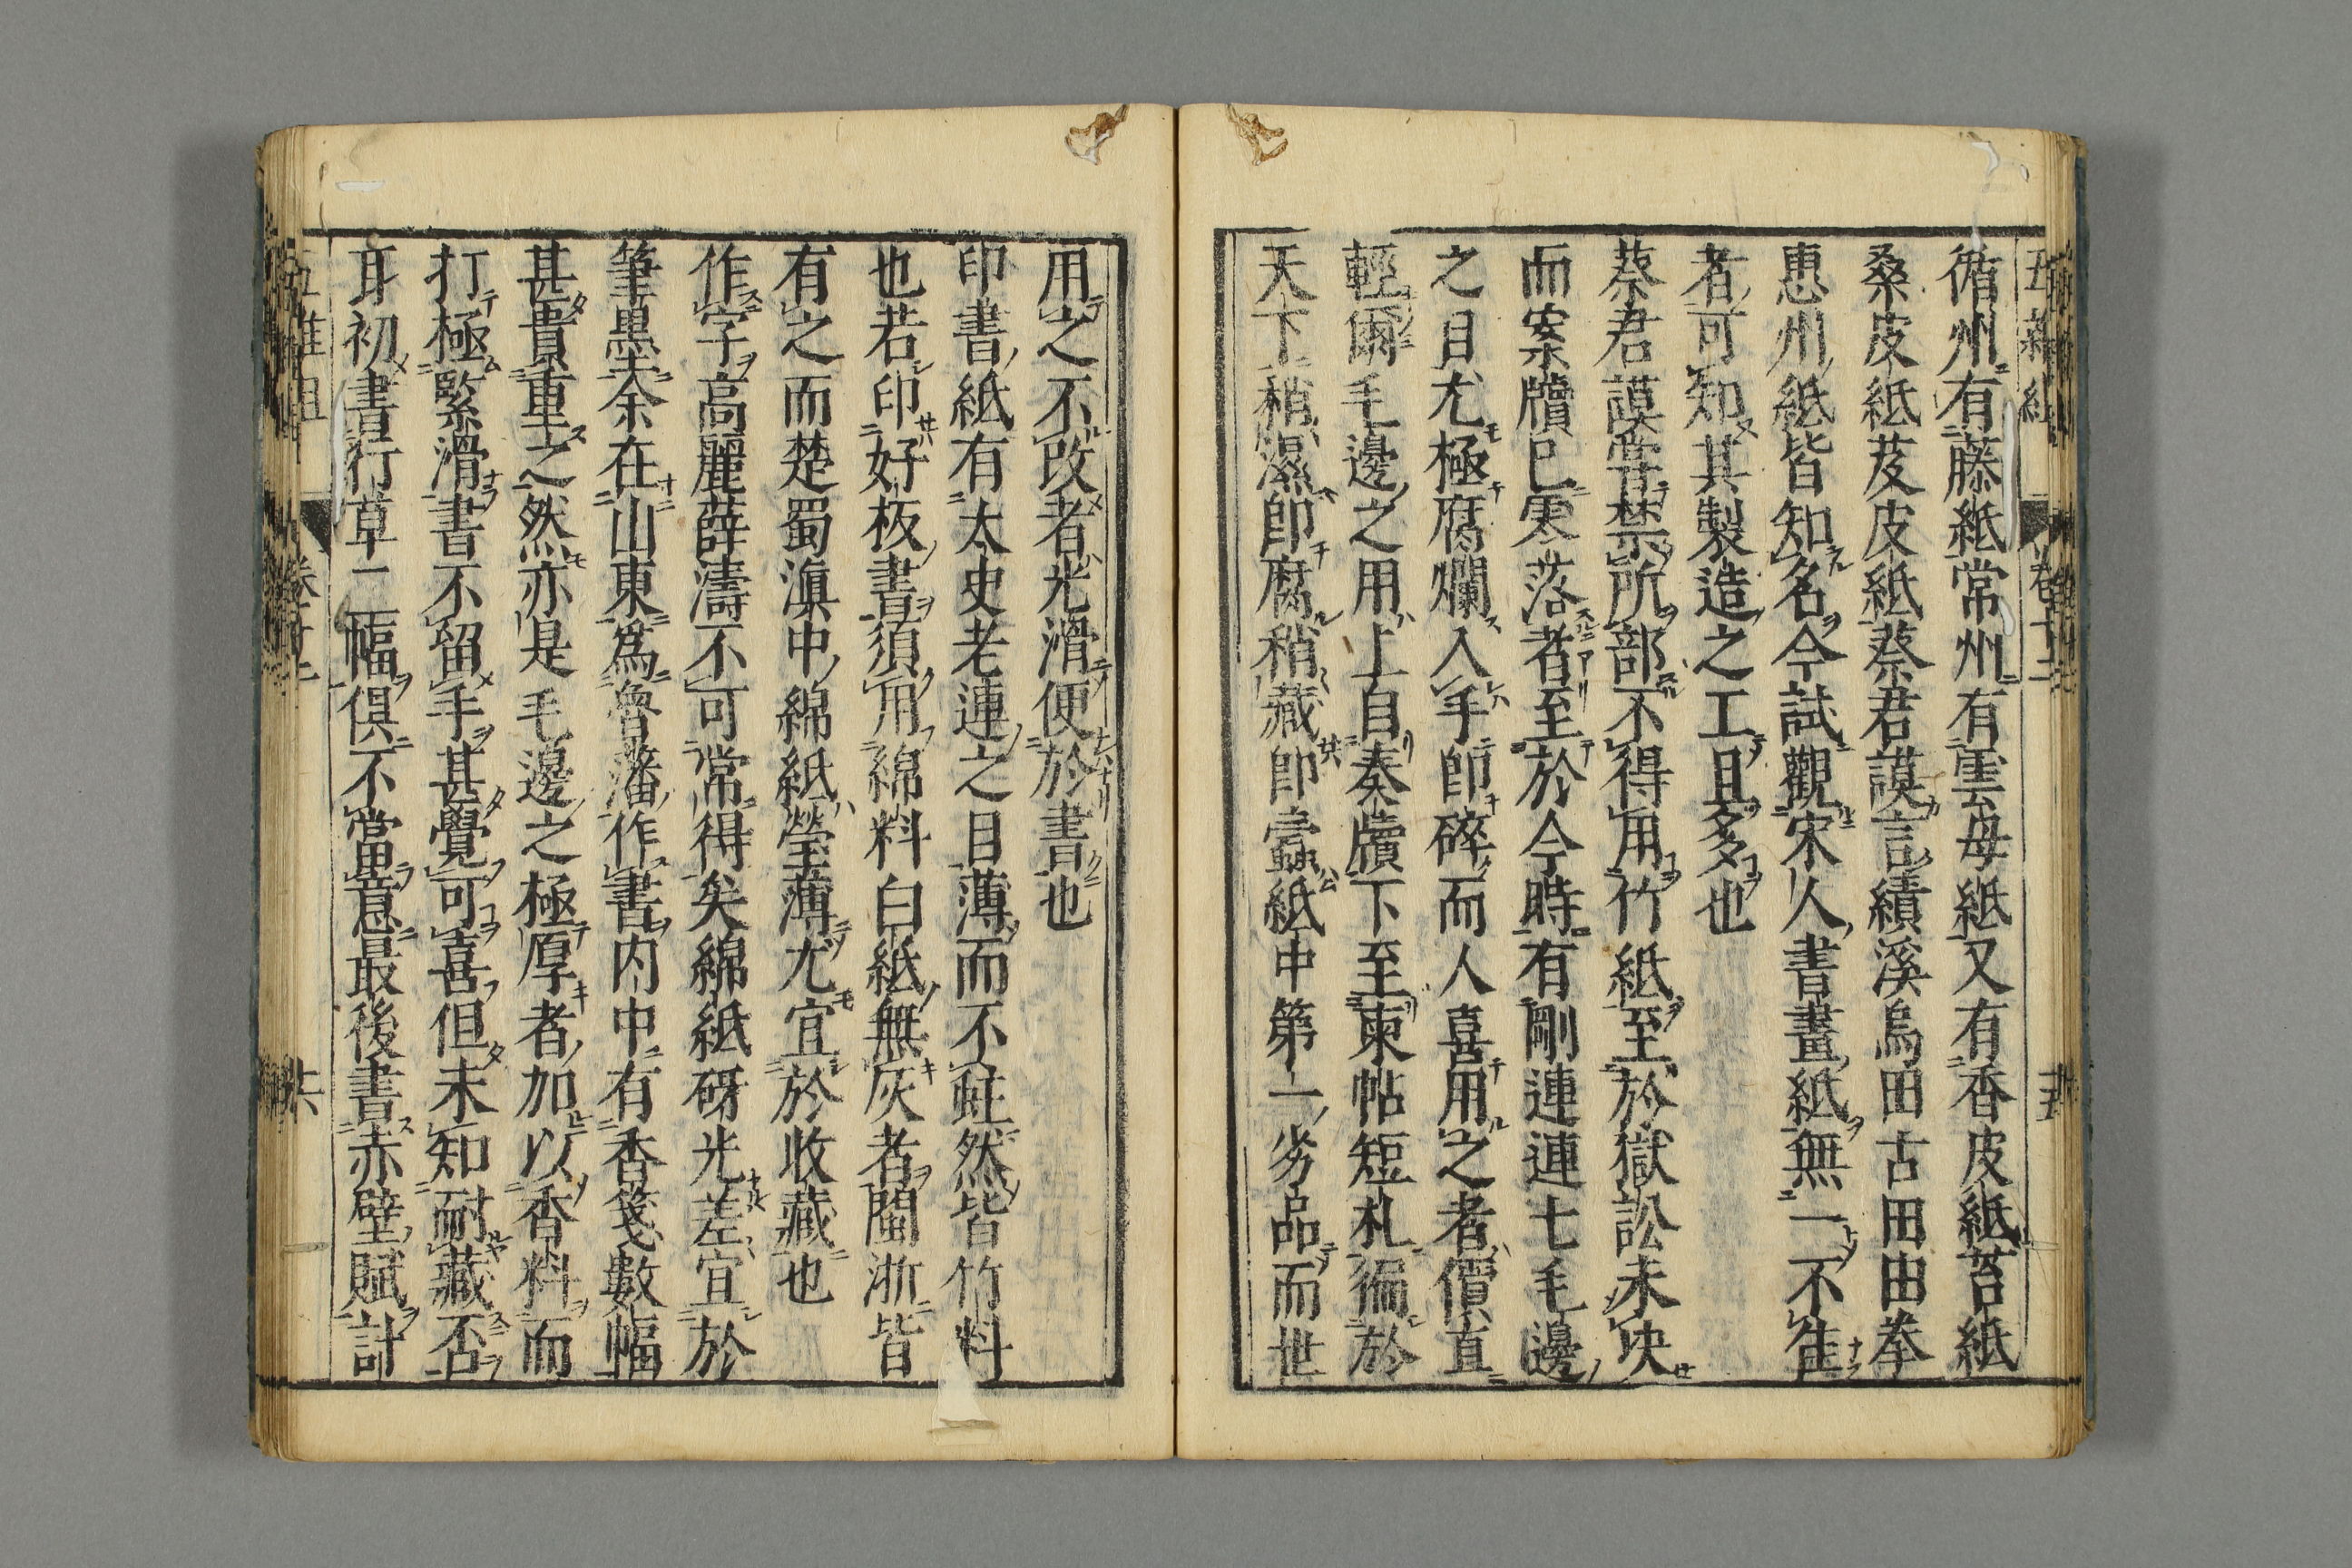 循州有藤紙常州有雲母紙又有香皮紙苔紙
桑皮紙芨皮紙蔡君謨言績溪烏田古田由拳
惠州紙皆知名今試觀宋人書畫紙無一不佳
者可知其製造之工且多也
蔡君謨嘗禁所部不得用竹紙至於獄訟未决
而案牘已零落者至於今時有剛連連七毛邊
之目尤極腐爛入手即碎而人喜用之者價直
輕爾毛邊之用上自奏牘下至柬帖短札徧於
天下稍濕即腐稍藏即蠹紙中第一劣品而世
用之不改者光滑便於書也
印書紙有太史老連之目薄而不蛀然皆竹料
也若印好板書須用綿料白紙無灰者閩浙皆
有之而楚蜀滇中綿紙瑩薄尤宜於收藏也
作字高麗薛濤不可常得矣綿紙砑光差宜於
筆墨余在山東爲魯藩作書内中有香箋數幅
甚貴重之然亦是毛邊之極厚者加以香料而
打極緊滑書不留手甚覺可喜但未知耐藏否
耳初書行草二幅俱不當意最後書赤壁賦計
卷十二
卷十二